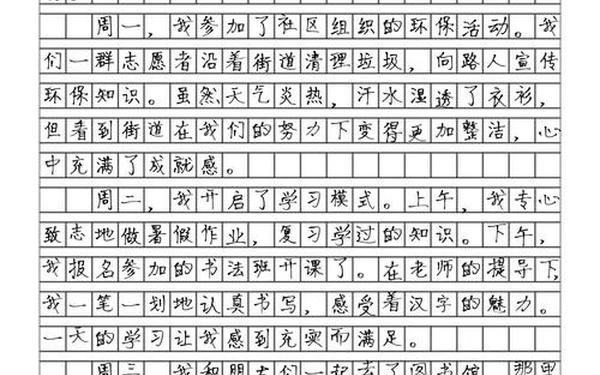 周一，我参加了社区组织的环保活动。我
们一群志愿者沿着街道清理垃圾，向路人宣传
环保知识。虽然天气炎热，汗水湿透了衣衫，
但看到街道在我们的努力下变得更加整洁，心
中充满了成就感。
周二，我开启了学习模式。上午，我专心
致志地做暑假作业，复习学过的知识。下午，
我报名参加的书法班开课了。在老师的提导下，
我一笔一划地认真书写，感受着汉字的魅力。
一天的学习让我感到充实而满足。
周三，我和朋友们一起去了图书馆，那里